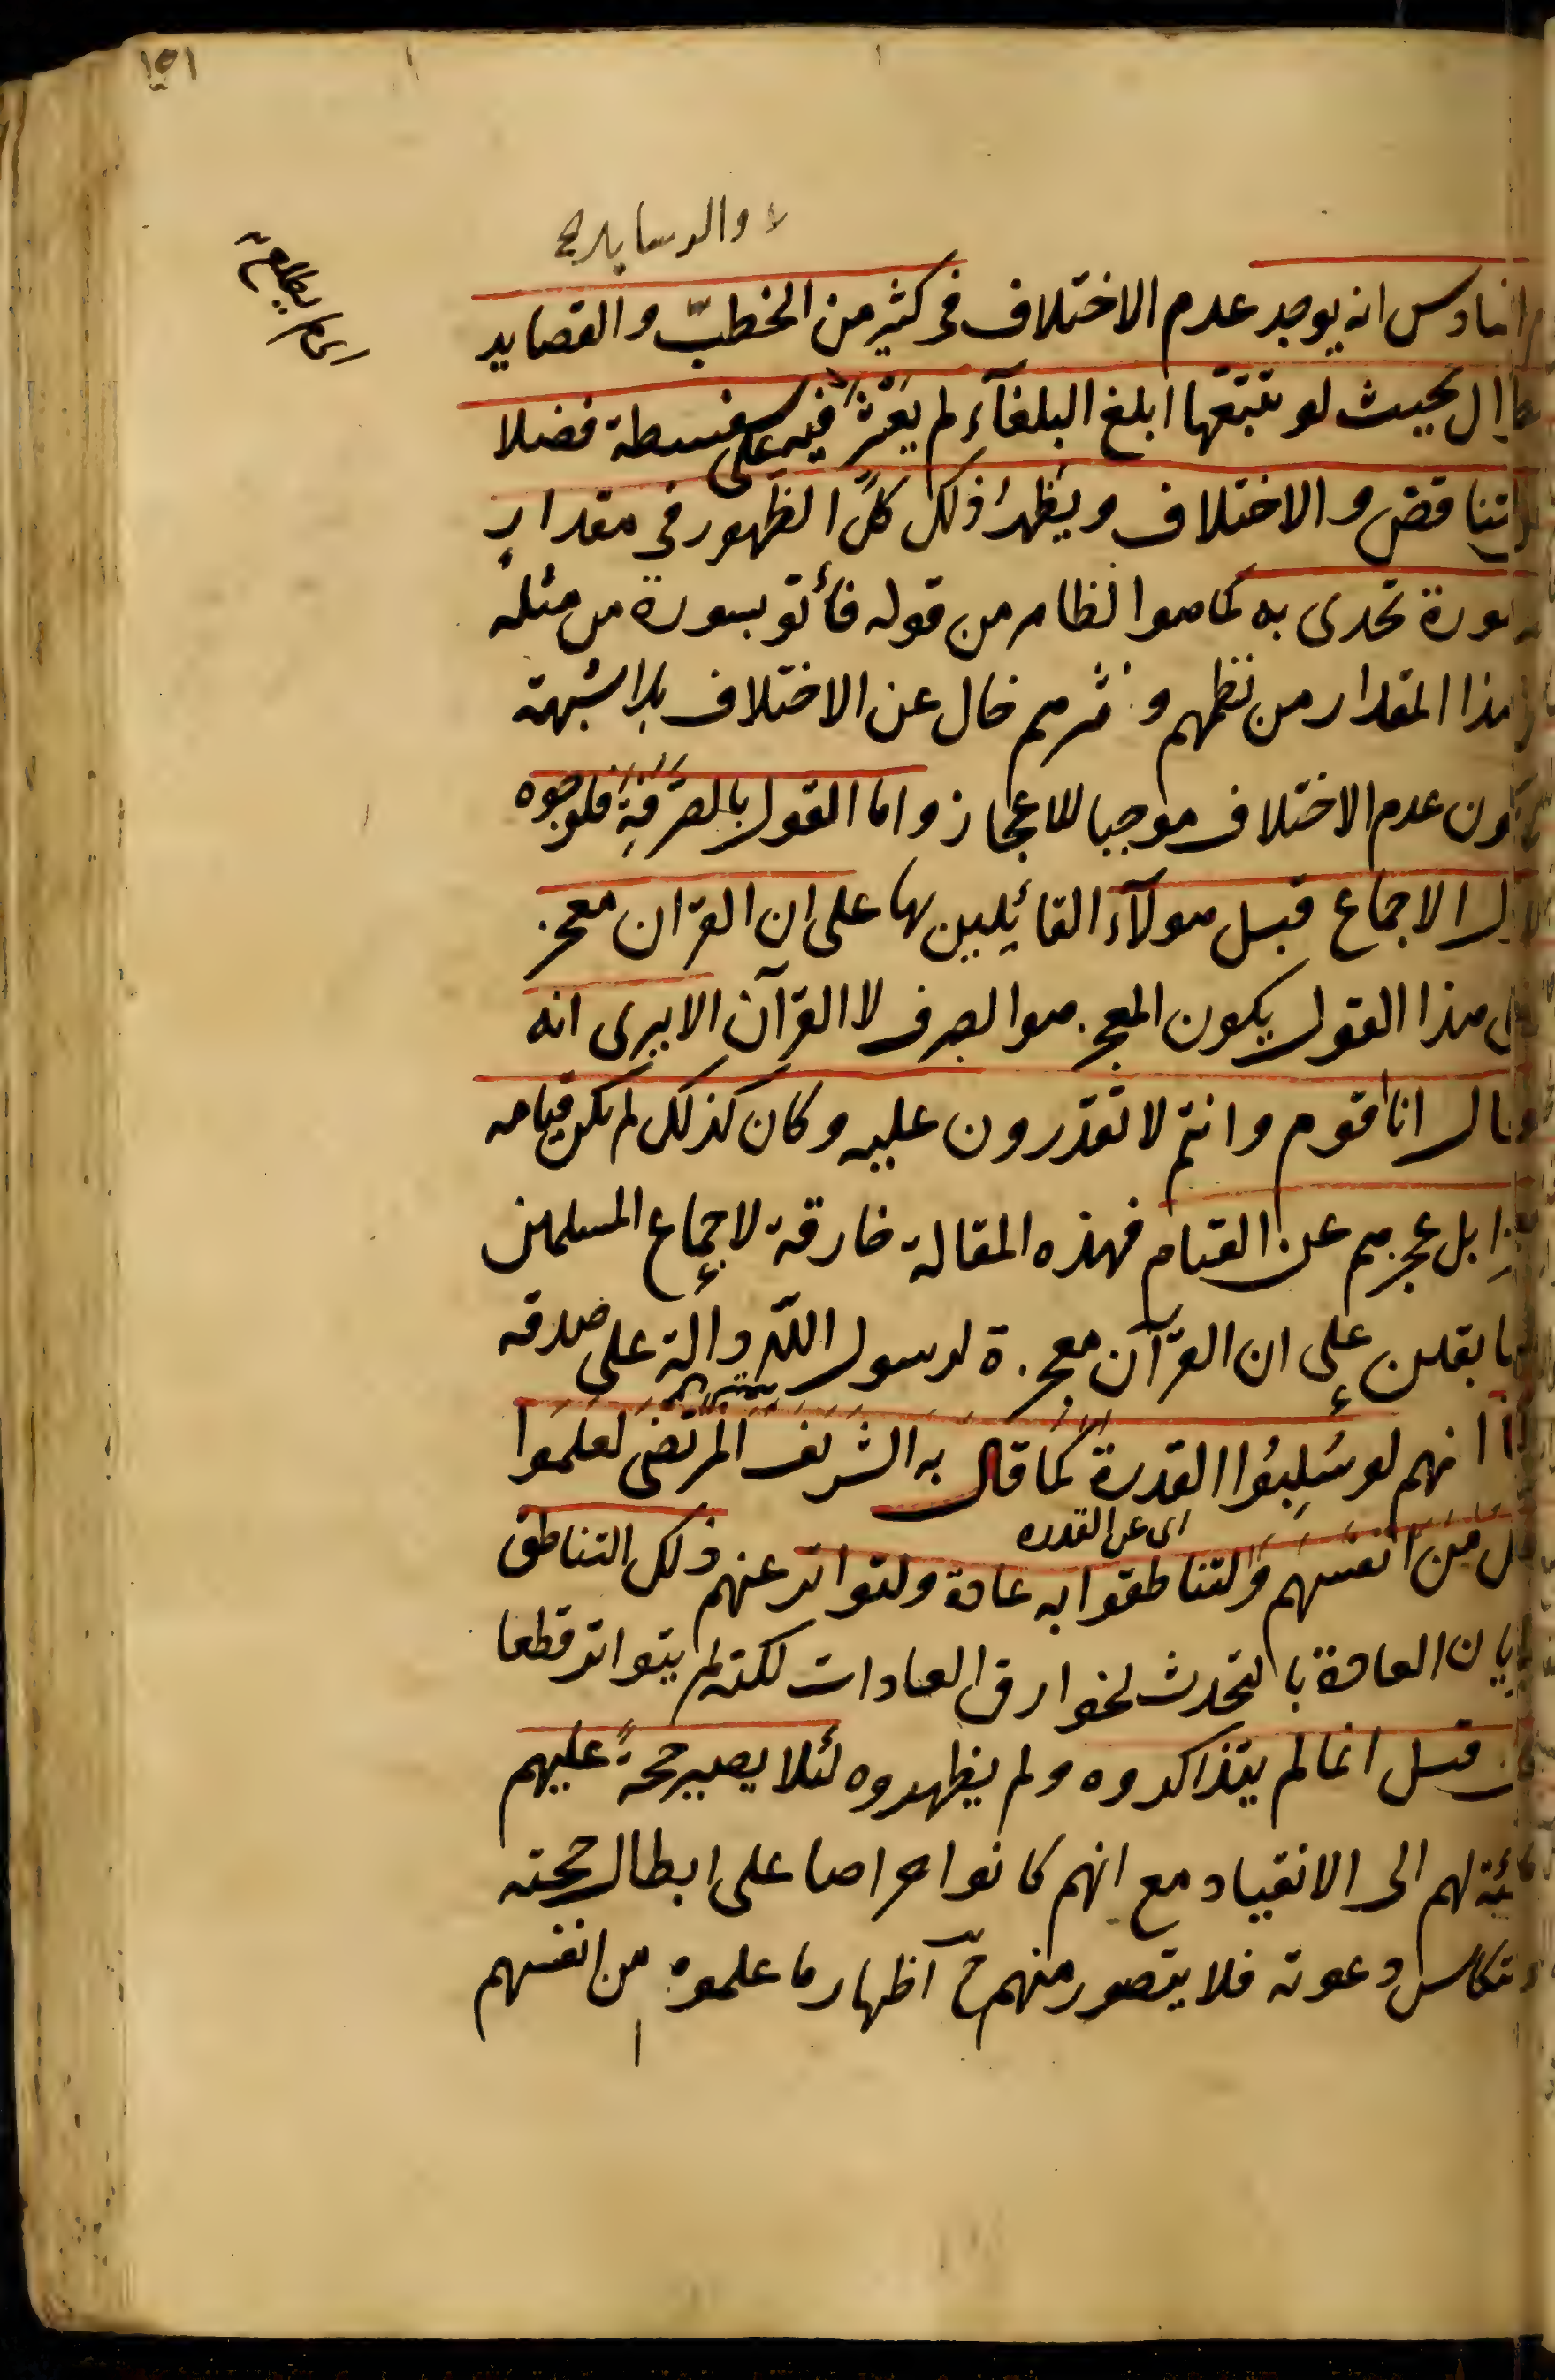 ١٥١
انه يوجد عدم الاختلاف فى كثير من الخطب والقصايد
بحيث لو تتبعها ابلغ البلغآء لم يعثر فيه على سفسطة فضلا
التناقض والاختلاف ويظهر ذلك كل الظهور فى مقدار
سورة تحدى به كما هو الظاهر من قوله فأتو بسورة من مثله
هذا المقدار من نظمهم ونثرهم خال عن الاختلاف بلا شبهة
عدم الاختلاف موجبا للاعجاز واما القول بالصّرفة فلوجوه
الاجماع قبل هولآء القائلين بها على ان القران معجز
هذا القول يكون المعجز هو الصرف لا القرآن الا يرى انه
قال انا اقوم وانتم لا تقدرون عليه وكان كذلك لم يكن قيامه
بل عجزهم عن القيام فهذه المقالة خارقة لاجماع المسلمين
على ان القرآن معجزة لرسول الله دالة على صدقه
انهم لو سُلِبُوا القدرة كما قال به الشريف المرتضى لعلموا
اى عن القدره
من انفسهم ولتناطقوا به عادة ولتواتر عنهم ذلك التناطق
العادة بالتحدث لخوارق العادات لكنه لم يتواتر قطعا
قيل انما لم يتذاكروه ولم يظهروه لئلا يصير حجةً عليهم
لهم الى الانقياد مع انهم كانوا حراصا على ابطال حجته
دعوته فلا يتصور منهم ح اظهار ما علموه من انفسهم